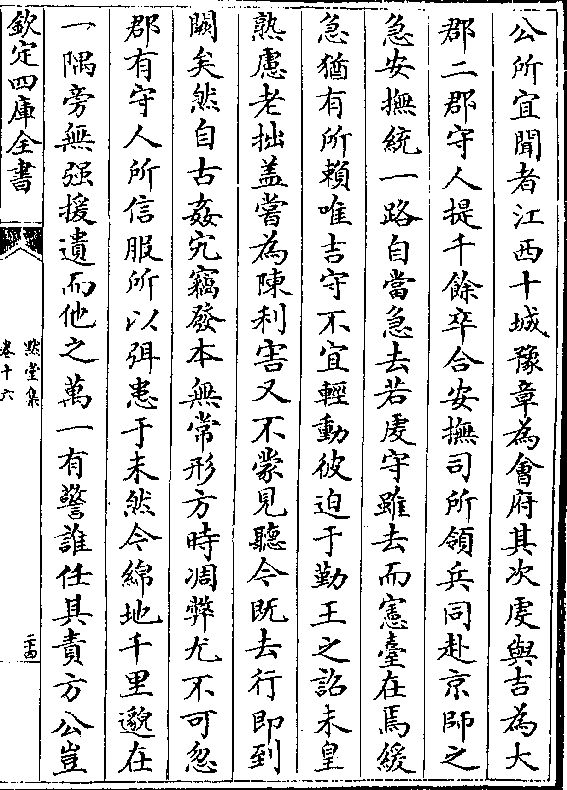 公所宜聞者江西十城豫章為會府其次虔與吉為大
郡二郡守人提千餘卒合安撫司所領兵同赴京師之
急安撫統一路自當急去若虔守雖去而憲臺在焉緩
急猶有所賴唯吉守不宜輕動彼迫于勤王之詔未皇
熟慮老拙盖嘗為陳利害又不蒙見聽今既去行即到
闕矣然自古姦宄竊發本無常形方時凋弊尤不可忽
郡有守人所信服所以弭患于未然今綿地千里邈在
一隅旁無强援遺而他之萬一有警誰任其責方公豈
欽定四庫全書
默堂集
卷十六
二十四